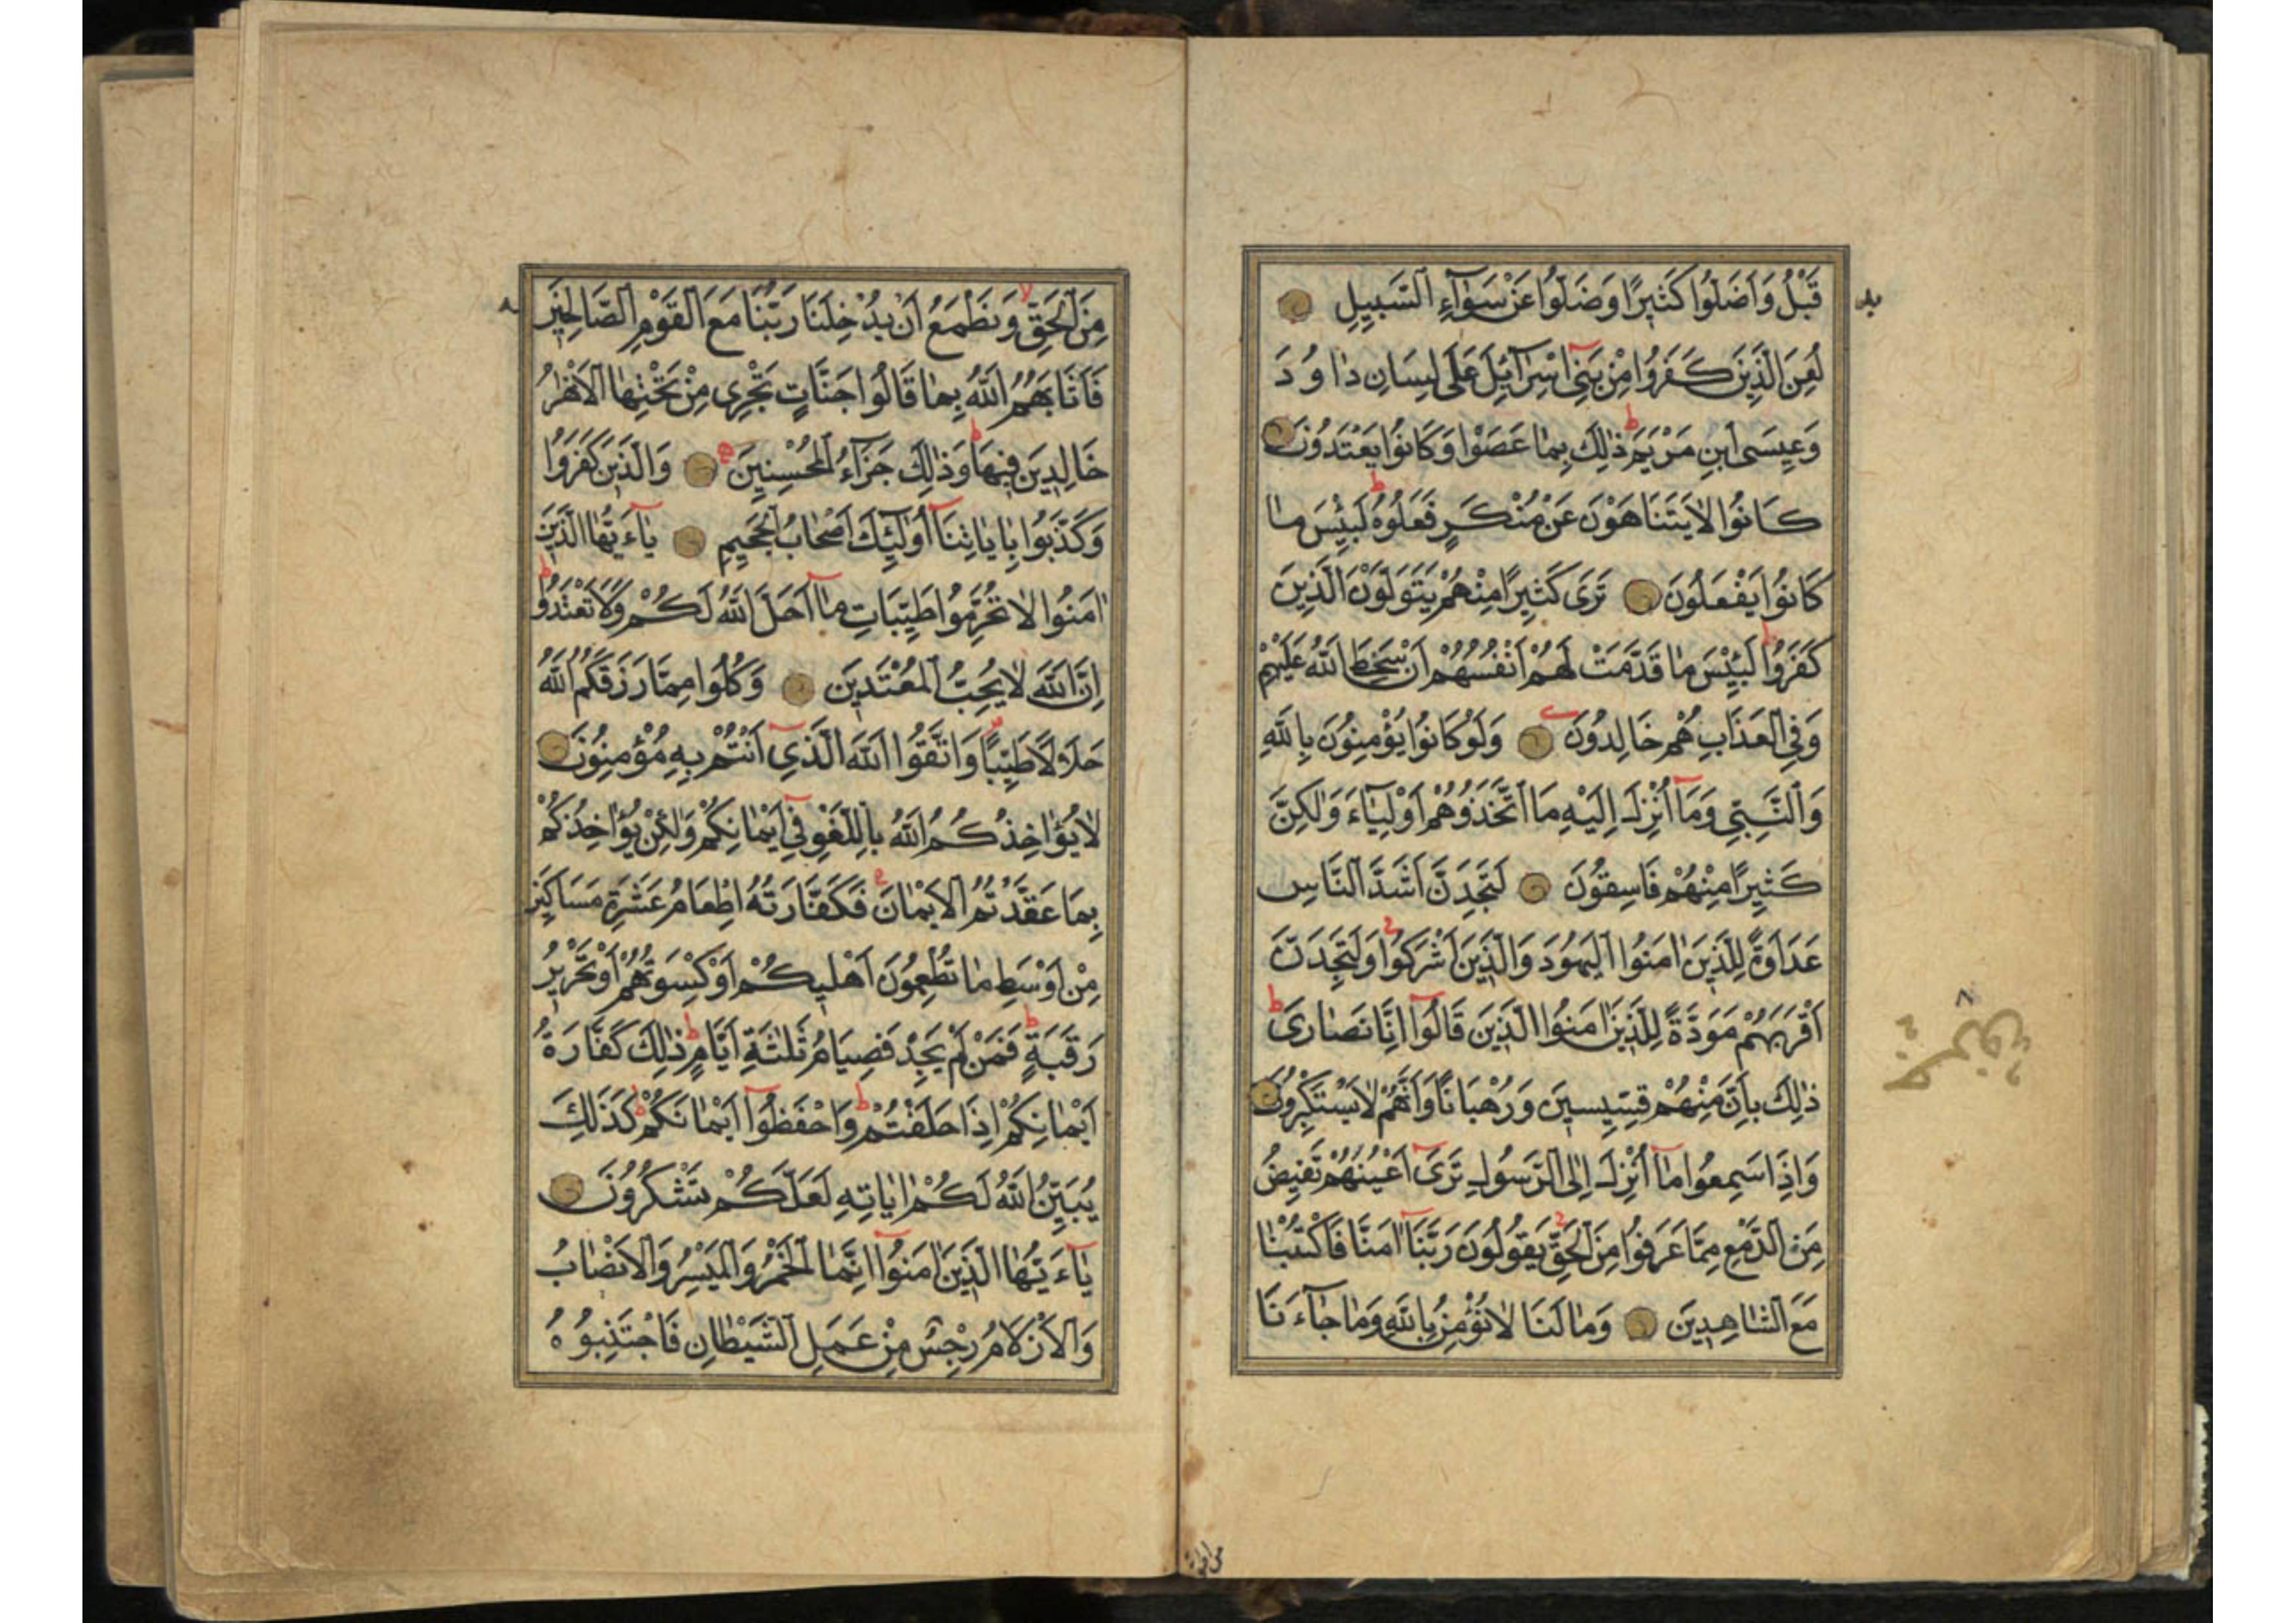 قَبْلُ وَاَضَلُّوا كَثِيرًا وَضَلُّوا عَنْ سَوَآءِ السَّبِيلِ
لُعِنَ الَّذِينَ كَفَرُوا مِنْ بَنِٓي اسْرَآئِلَ عَلَى لِسَانِ دَاوُدَ
وَعِيسَى ابْنِ مَرْيَمَ ذٰلِكَ بِمَا عَصَوْا وَكَانُوا يَعْتَدُونَ
كَانُوا لَا يَتَنَاهَوْنَ عَنْ مُنْكَرٍ فَعَلُوهُ لَبِئْسَ مَا
كَانُوا يَفْعَلُونَ تَرَى كَثِيرًا مِنْهُمْ يَتَوَلَّوْنَ الَّذِينَ
كَفَرُوا لَبِئْسَ مَا قَدَّمَتْ لَهُمْ اَنْفُسُهُمْ اَنْ سَخِطَ اللّٰهُ عَلَيْهِمْ
وَفِي الْعَذَابِ هُمْ خَالِدُونَ وَلَوْ كَانُوا يُؤْمِنُونَ بِاللّٰهِ
وَالنَّبِيِّ وَمَٓا اُنْزِلَ اِلَيْهِ مَا اتَّخَذُوهُمْ اَوْلِيَٓاءَ وَلٰكِنَّ
كَثِيرًا مِنْهُمْ فَاسِقُونَ لَتَجِدَنَّ اَشَدَّ النَّاسِ
عَدَاوَةً لِلَّذِينَ اٰمَنُوا الْيَهُودَ وَالَّذِينَ اَشْرَكُوا وَلَتَجِدَنَّ
اَقْرَبَهُمْ مَوَدَّةً لِلَّذِينَ اٰمَنُوا الَّذِينَ قَالُٓوا اِنَّا نَصَارَى
ذٰلِكَ بِاَنَّ مِنْهُمْ قِسِّيسِينَ وَرُهْبَانًا وَاَنَّهُمْ لَا يَسْتَكْبِرُونَ
وَاِذَا سَمِعُوا مَٓا اُنْزِلَ اِلَى الرَّسُولِ تَرَٓى اَعْيُنَهُمْ تَفِيضُ
مِنَ الدَّمْعِ مِمَّا عَرَفُوا مِنَ الْحَقِّ يَقُولُونَ رَبَّنَٓا اٰمَنَّا فَاكْتُبْنَا
مَعَ الشَّاهِدِينَ وَمَا لَنَا لَا نُؤْمِنُ بِاللّٰهِ وَمَا جَٓاءَنَا
مِنَ الْحَقِّ وَنَطْمَعُ اَنْ يُدْخِلَنَا رَبُّنَا مَعَ الْقَوْمِ الصَّالِحِينَ
فَاَثَابَهُمُ اللّٰهُ بِمَا قَالُوا جَنَّاتٍ تَجْرِي مِنْ تَحْتِهَا الْاَنْهٰرُ
خَالِدِينَ فِيهَا وَذٰلِكَ جَزَٓاءُ الْمُحْسِنِينَ وَالَّذِينَ كَفَرُوا
وَكَذَّبُوا بِاٰيَاتِنَٓا اُولٰٓئِكَ اَصْحَابُ الْجَحِيمِ يَٓاءَيُّهَا الَّذِينَ
اٰمَنُوا لَا تُحَرِّمُوا طَيِّبَاتِ مَٓا اَحَلَّ اللّٰهُ لَكُمْ وَلَا تَعْتَدُوا
اِنَّ اللّٰهَ لَا يُحِبُّ الْمُعْتَدِينَ وَكُلُوا مِمَّا رَزَقَكُمُ اللّٰهُ
حَلَالًا طَيِّبًا وَاتَّقُوا اللّٰهَ الَّذِٓي اَنْتُمْ بِهِ مُؤْمِنُونَ
لَا يُؤَاخِذُكُمُ اللّٰهُ بِاللَّغْوِ فِٓي اَيْمَانِكُمْ وَلٰكِنْ يُؤَاخِذُكُمْ
بِمَا عَقَّدْتُمُ الْاَيْمَانَ فَكَفَّارَتُهُ اِطْعَامُ عَشَرَةِ مَسَاكِينَ
مِنْ اَوْسَطِ مَا تُطْعِمُونَ اَهْلِيكُمْ اَوْ كِسْوَتُهُمْ اَوْ تَحْرِيرُ
رَقَبَةٍ فَمَنْ لَمْ يَجِدْ فَصِيَامُ ثَلٰثَةِ اَيَّامٍ ذٰلِكَ كَفَّارَةُ
اَيْمَانِكُمْ اِذَا حَلَفْتُمْ وَاحْفَظُٓوا اَيْمَانَكُمْ كَذَلِكَ
يُبَيِّنُ اللّٰهُ لَكُمْ اٰيَاتِهِ لَعَلَّكُمْ تَشْكُرُونَ
يَٓاءَيُّهَا الَّذِينَ اٰمَنُٓوا اِنَّمَا الْخَمْرُ وَالْمَيْسِرُ وَالْاَنْصَابُ
وَالْاَزْلَامُ رِجْسٌ مِنْ عَمَلِ الشَّيْطَانِ فَاجْتَنِبُوهُ